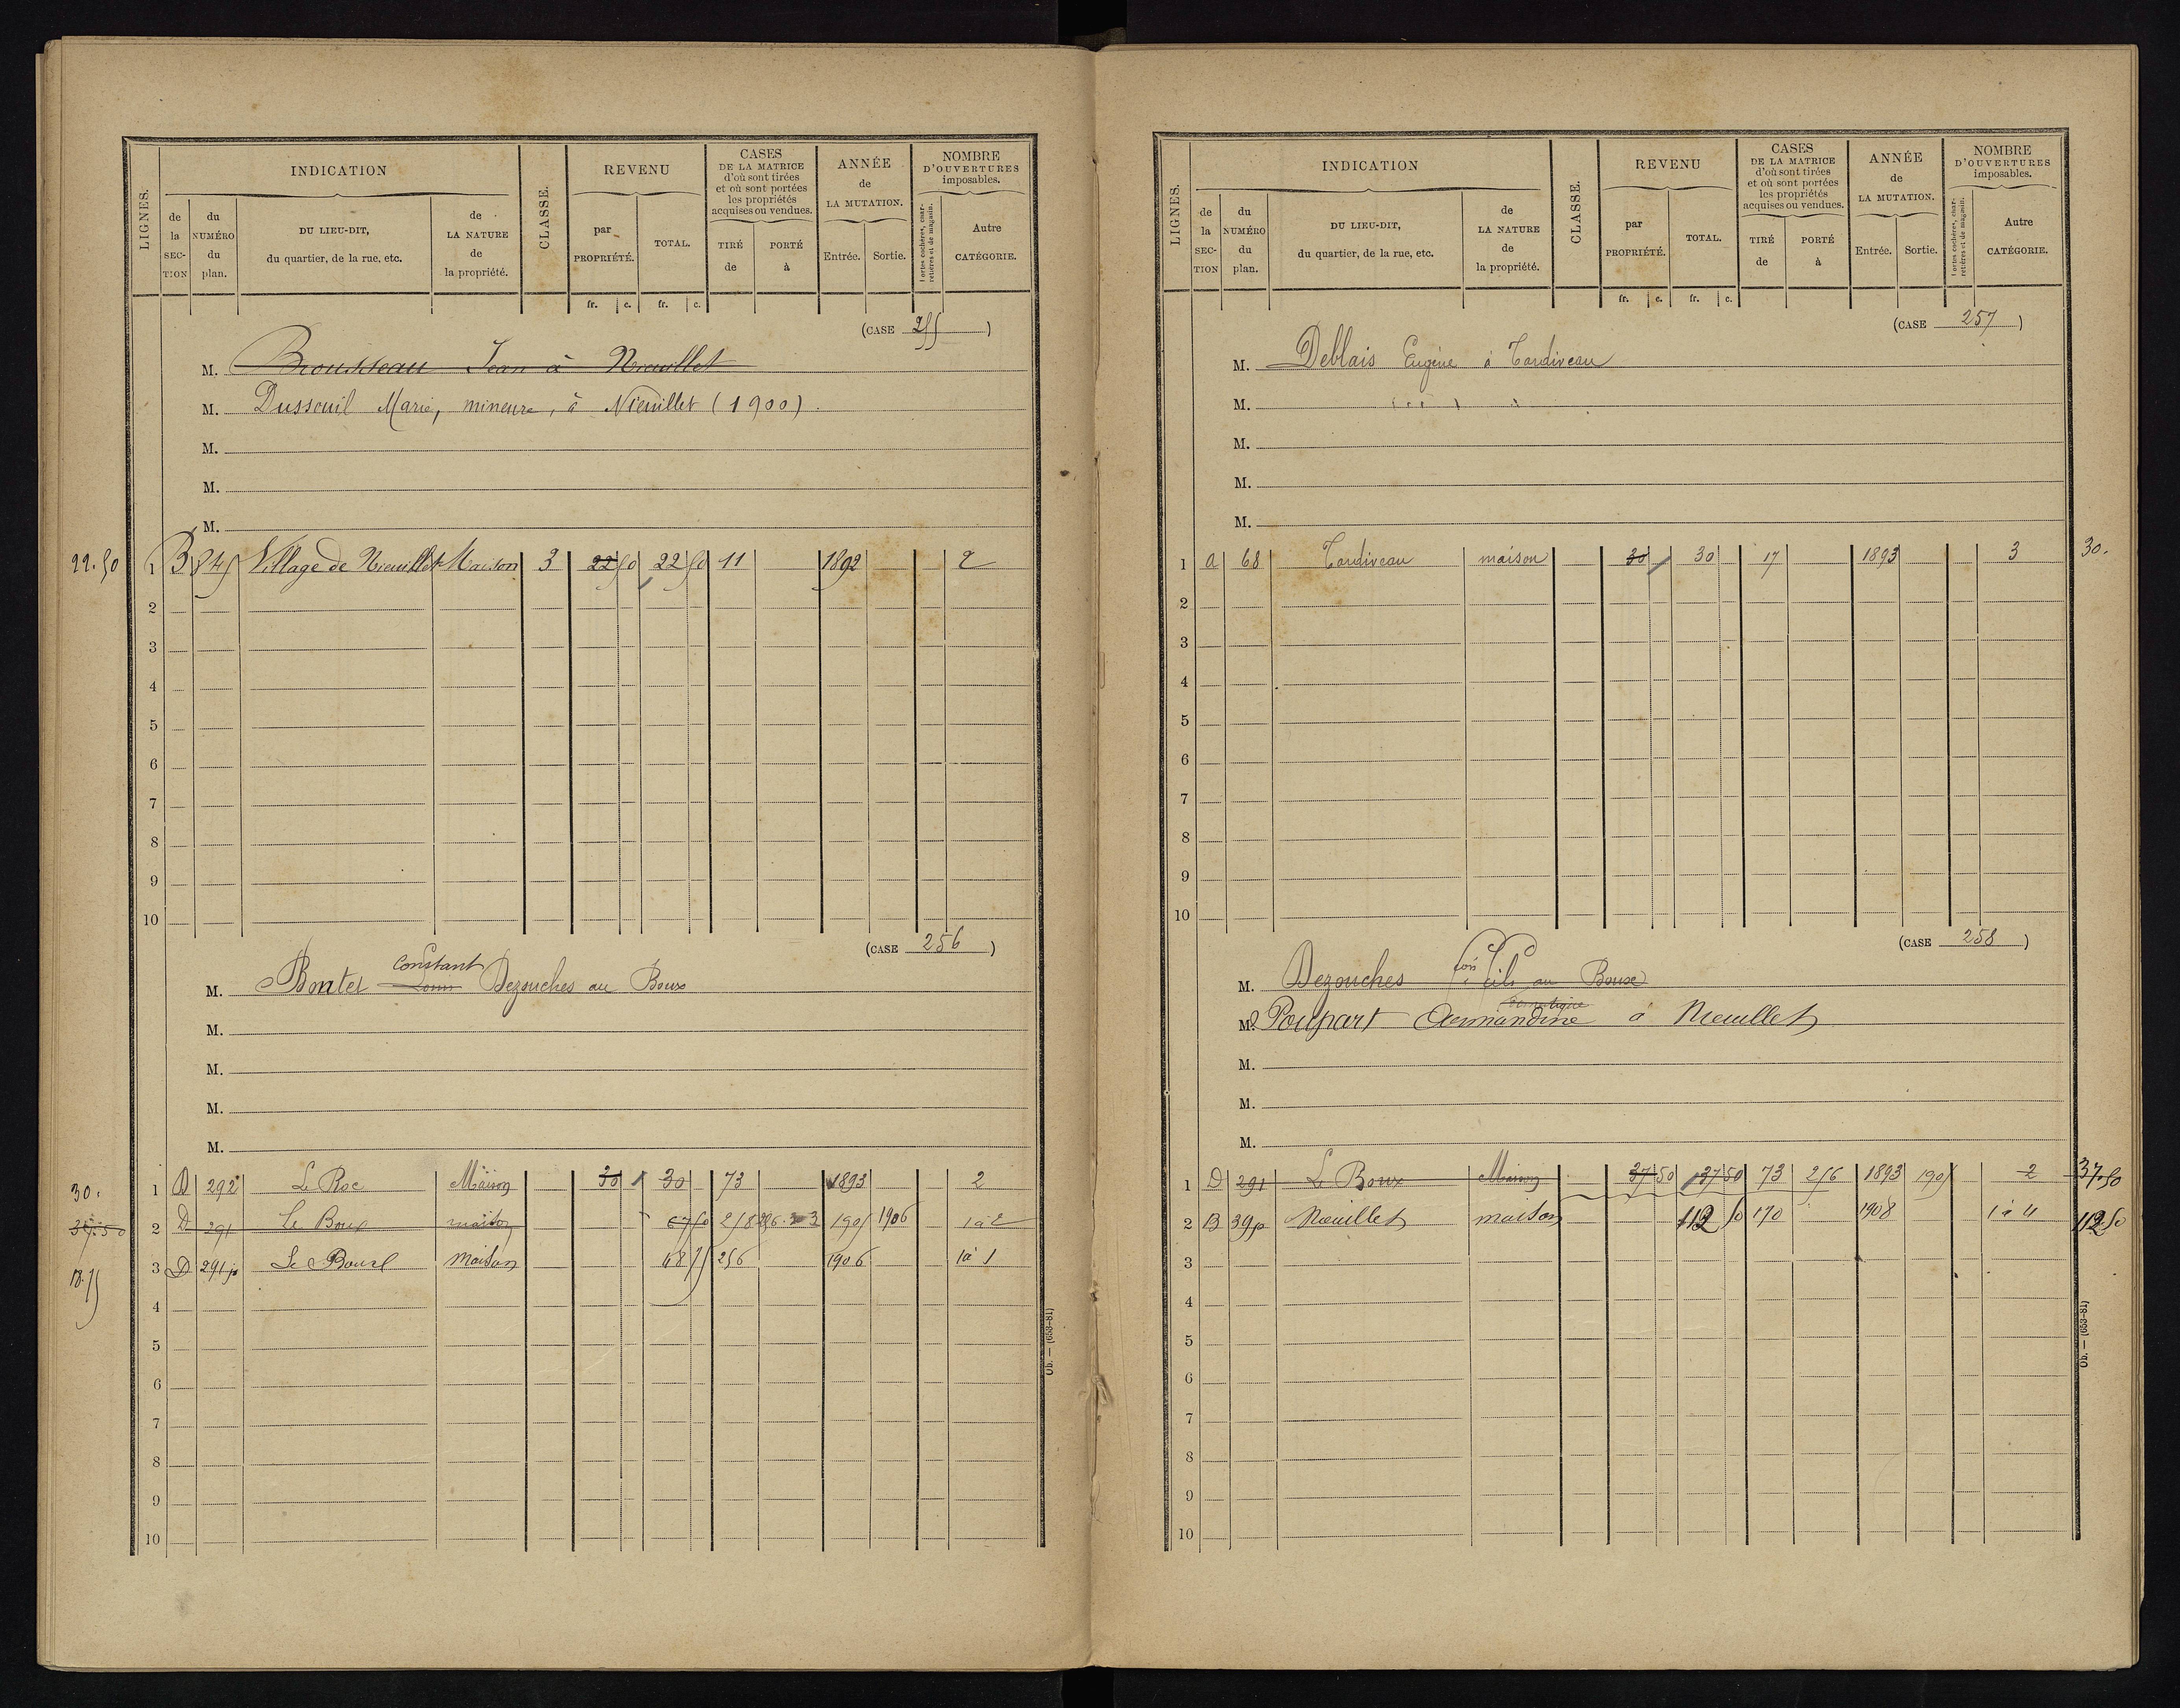 INDICATION
CLASSE.
REVENU
CASES
DE LA MATRICE
d'où sont tirées
et où sont portées
les propriétés
acquises ou vendues.
ANNÉE
de
LA MUTATION.
NOMBRE
D'OUVERTURES
imposables.
LIGNES.
de la SEC-TION
du NUMÉRO du plan.
DU LIEU-DIT,
du quartier, de la rue, etc.
de LA NATURE de la propriété.
par PROPRIÉTÉ.
TOTAL.
TIRÉ de
PORTÉ à
Entrée.
Sortie.
Portes cochères, charretières et de magasin.
Autre CATÉGORIE.
fr. c. fr. c.
(CASE 255)
M. Brousseau Jean à Nieuillet
M. Dusseuil Marie, mineure, à Nieuillet (1900).
M.
M.
M.
22.50 1 B 845 Village de Nieuillet Maison 3 22 50 22 50 11 1892 2
2
3
4
5
6
7
8
9
10
(CASE 256)
Constant
M. Bontet Louis Dezouches au Boux
M.
M.
M.
M.
30. 1 D 292 Le Roc Maison 30 30 73 1893 2
37.50 2 D 291 Le Boux maison 37 50 258 256 1905 1906 1 à 2
18.75 3 D 291p Le Boux Maison 18 75 256 1906 1 à 1
4
5
6
7
8
9
10
Ob. — (653-81)
INDICATION
CLASSE.
REVENU
CASES
DE LA MATRICE
d'où sont tirées
et où sont portées
les propriétés
acquises ou vendues.
ANNÉE
de
LA MUTATION.
NOMBRE
D'OUVERTURES
imposables.
LIGNES.
de la SEC-TION
du NUMÉRO du plan.
DU LIEU-DIT,
du quartier, de la rue, etc.
de LA NATURE de la propriété.
par PROPRIÉTÉ.
TOTAL.
TIRÉ de
PORTÉ à
Entrée.
Sortie.
Portes cochères, charretières et de magasin.
Autre CATÉGORIE.
fr. c. fr. c.
(CASE 257)
M. Deblais Eugène à Tardiveau
M.
M.
M.
M.
1 a 68 Tardiveau maison 30 30 17 1893 3 30.
2
3
4
5
6
7
8
9
10
(CASE 258)
M. Dezouches fils au Boux
domestique
M. Poupart Armandine à Nieuillet
M.
M.
M.
1 D 291 Le Boux Maison 37 50 37 50 73 256 1893 1905 2 37.50
2 B 39p Nieuillet maison 112 50 170 1908 1 à 4 112.50
3
4
5
6
7
8
9
10
Ob. — (653-81)